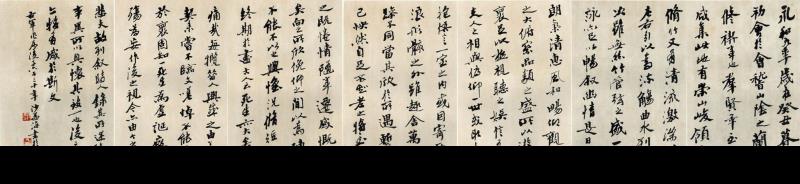 永和九年歲在癸丑暮
初會于會稽山陰之蘭
修禊事也群賢畢至
咸集此地有崇山峻領
脩竹又有清流激湍
左右引以為流觴曲水列
次雖無絲竹管弦之盛一
詠亦足以暢敘幽情是日
朗氣清惠風和暢仰觀
之大俯察品類之盛所以遊
足以極視聽之娛信可
夫人之相與俯仰一世或取
言一室之內或因寄
浪形骸之外雖趣舍萬
躁不同當其欣於所遇
己快然自足不知老之將至
之既惓情隨事遷感慨
矣向之所欣俛仰之間以為
不能不以之興懷況脩短
終期於盡古人云死生亦大矣
痛哉每攬昔人興感之由
契未嘗不臨文嗟悼不能
於懷固知死生為虛誕
殤為妄作後之視今亦由今之
悲夫故列敘時人錄其所述
事異所以興懷其致一也後之
上將有感於斯文
沙孟海書